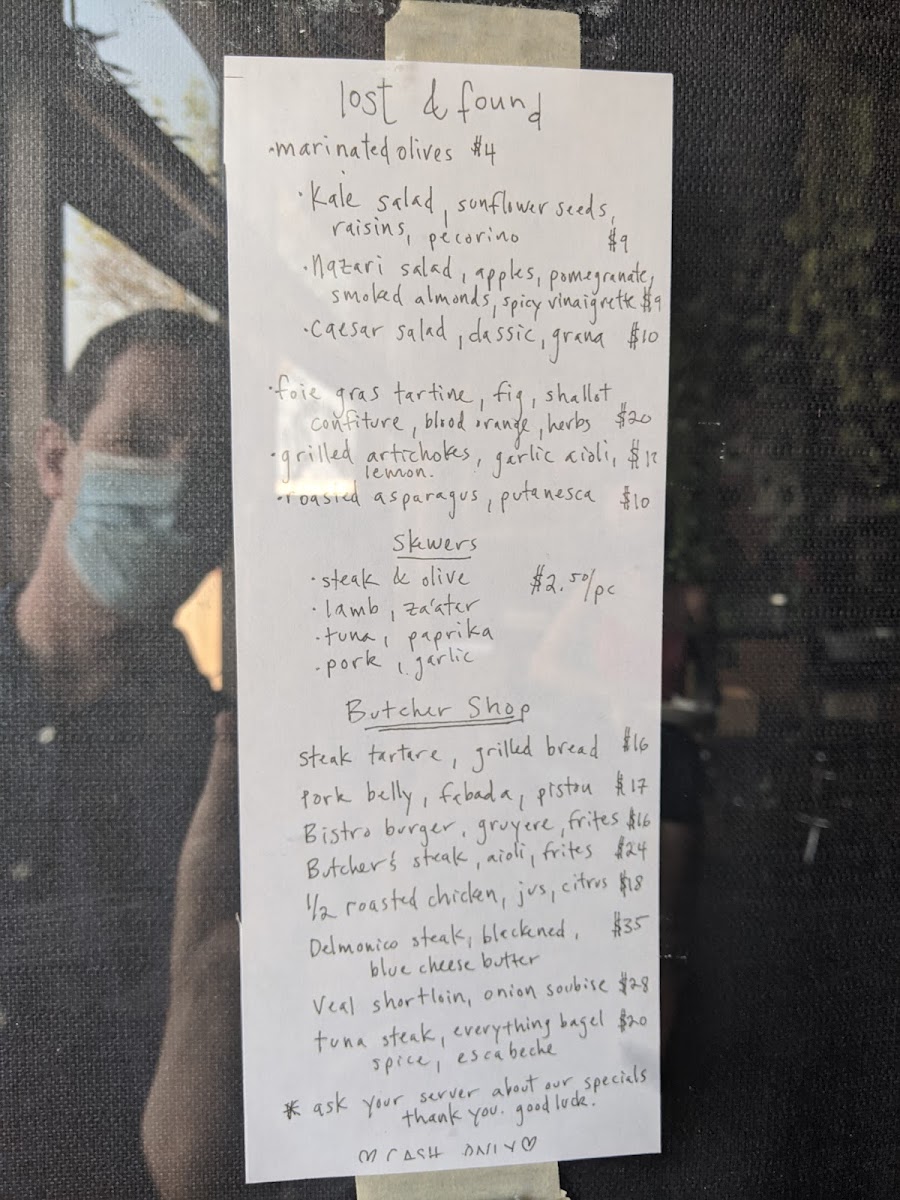 lost & found
·marinated olives $4
·Kale salad, sunflower seeds,
raisins, pecorino $9
·Nazari salad, apples, pomegranate,
smoked almonds, spicy vinaigrette $9
·Caesar salad, classic, grana $10
·foie gras tartine, fig, shallot
confiture, blood orange, herbs $20
·grilled artichokes, garlic aioli, $12
lemon.
·roasted asparagus, putanesca $10
Skewers
·steak & olive $2.50/pc
·lamb, za'atar
·tuna, paprika
·pork, garlic
Butcher Shop
steak tartare, grilled bread $16
pork belly, fabada, pistou $17
Bistro burger, gruyere, frites $16
Butcher's steak, aioli, frites $24
1/2 roasted chicken, jus, citrus $18
Delmonico steak, blackened, $35
blue cheese butter
Veal shortloin, onion soubise $28
tuna steak, everything bagel $20
spice, escabeche
* ask your server about our specials
thank you. good luck.
♡ CASH ONLY ♡